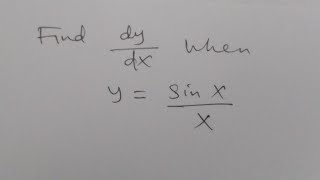 Find dy/dx when
y = sin x / x